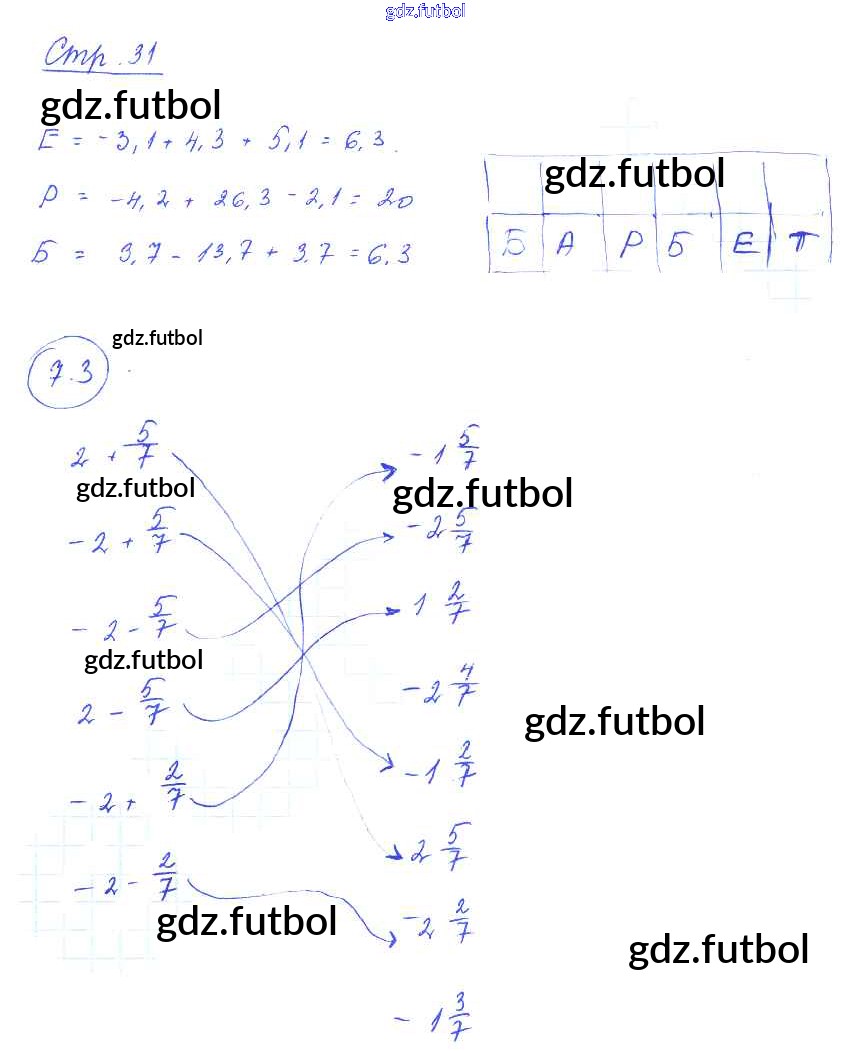 gdz.futbol
Стр. 31
gdz.futbol
Е = -3,1 + 4,3 + 5,1 = 6,3.
Р = -4,2 + 26,3 - 2,1 = 20
gdz.futbol
Б = 3,7 - 13,7 + 3,7 = 6,3
Б А Р Б Е Т
7.3
gdz.futbol
2 + 5/7
-1 5/7
gdz.futbol
gdz.futbol
-2 + 5/7
-2 5/7
-2 - 5/7
1 2/7
gdz.futbol
-2 4/7
2 - 5/7
gdz.futbol
-2 + 2/7
-1 2/7
2 5/7
-2 - 2/7
-2 2/7
gdz.futbol
gdz.futbol
-1 3/7